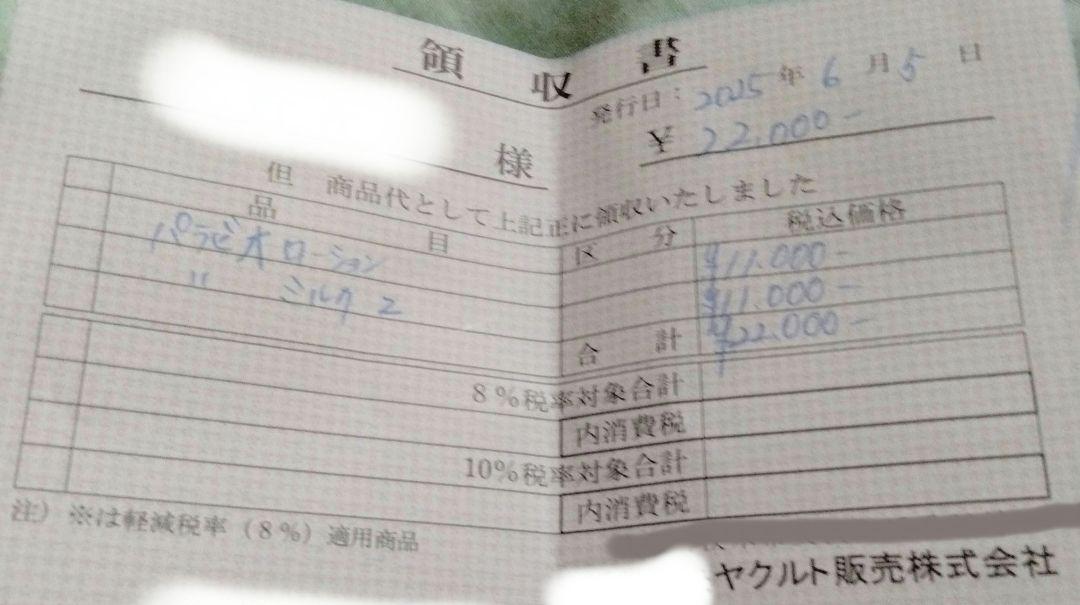 領収書
発行日: 2025年6月5日
様
¥ 22,000-
但 商品代として上記正に領収いたしました
品目 区分 税込価格
パラビオ ローション ¥11,000-
〃 ミルク 2 ¥11,000-
合計 ¥22,000-
8%税率対象合計
内消費税
10%税率対象合計
内消費税
注) ※は軽減税率(8%)適用商品
ヤクルト販売株式会社